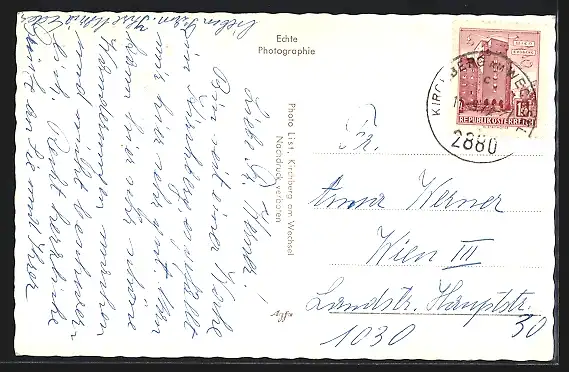 Echte
Photographie
Photo List, Kirchberg am Wechsel
Nachdruck verboten
Liebe Fr. Werner!
Bin seit einer Woche
in Kirchberg, es gefällt
mir hier sehr gut. Man
kann hier sehr schöne
Wanderungen machen
und nicht beschwer-
lich. Recht herzliche
Grüße an Sie und Ihre
KIRCHBERG AM WECHSEL
2880
REPUBLIK ÖSTERREICH
Fr.
Anna Werner
Wien III
Landstr. Hauptstr.
30
1030